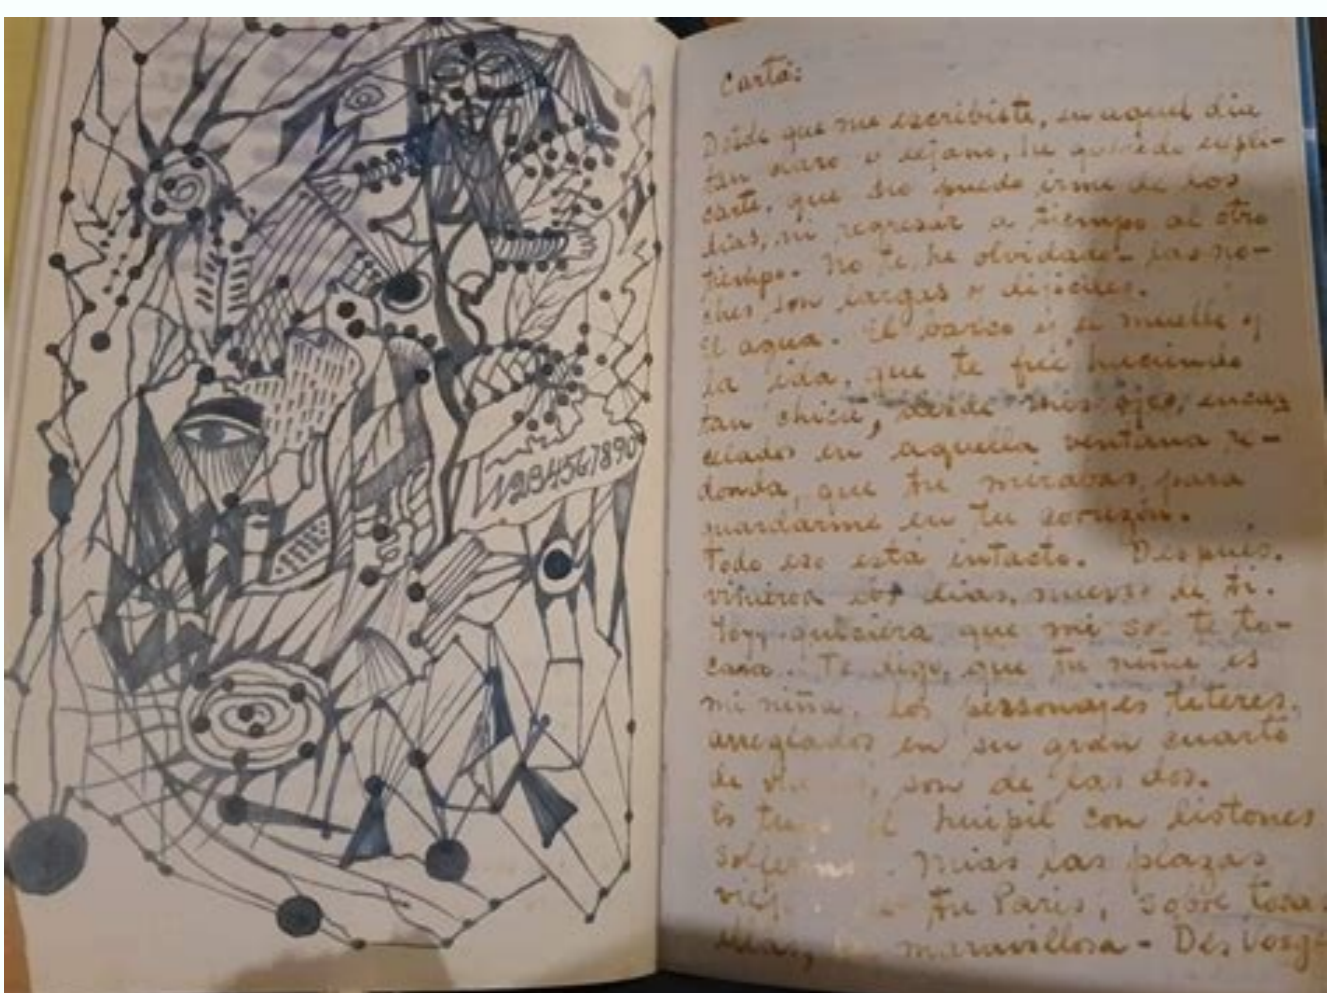 1234567890
Carta:
Desde que me escribiste, en aquel dia
tan claro y lejano, he querido expli-
carte, que no puedo irme de los
dias, ni regresar a tiempo al otro
tiempo. No te he olvidado - las no-
ches son largas y dificiles.
El agua. El barco y el muelle y
la ida, que te fué haciendo
tan chica, desde mis ojos, encar
celados en aquella ventana re-
donda, que tu mirabas para
guardarme en tu corazón.
Todo eso está intacto. Después,
vinieron los dias, nuevos de ti.
Hoy, quisiera que mi sol te to-
cara. Te digo, que tu niña es
mi niña, los personajes titeres,
arreglados en su gran cuarto
de son de las dos.
Es el huipil con listones
Mias las plazas
tu Paris, sobre todas
ellas, maravillosa - Des Vosge